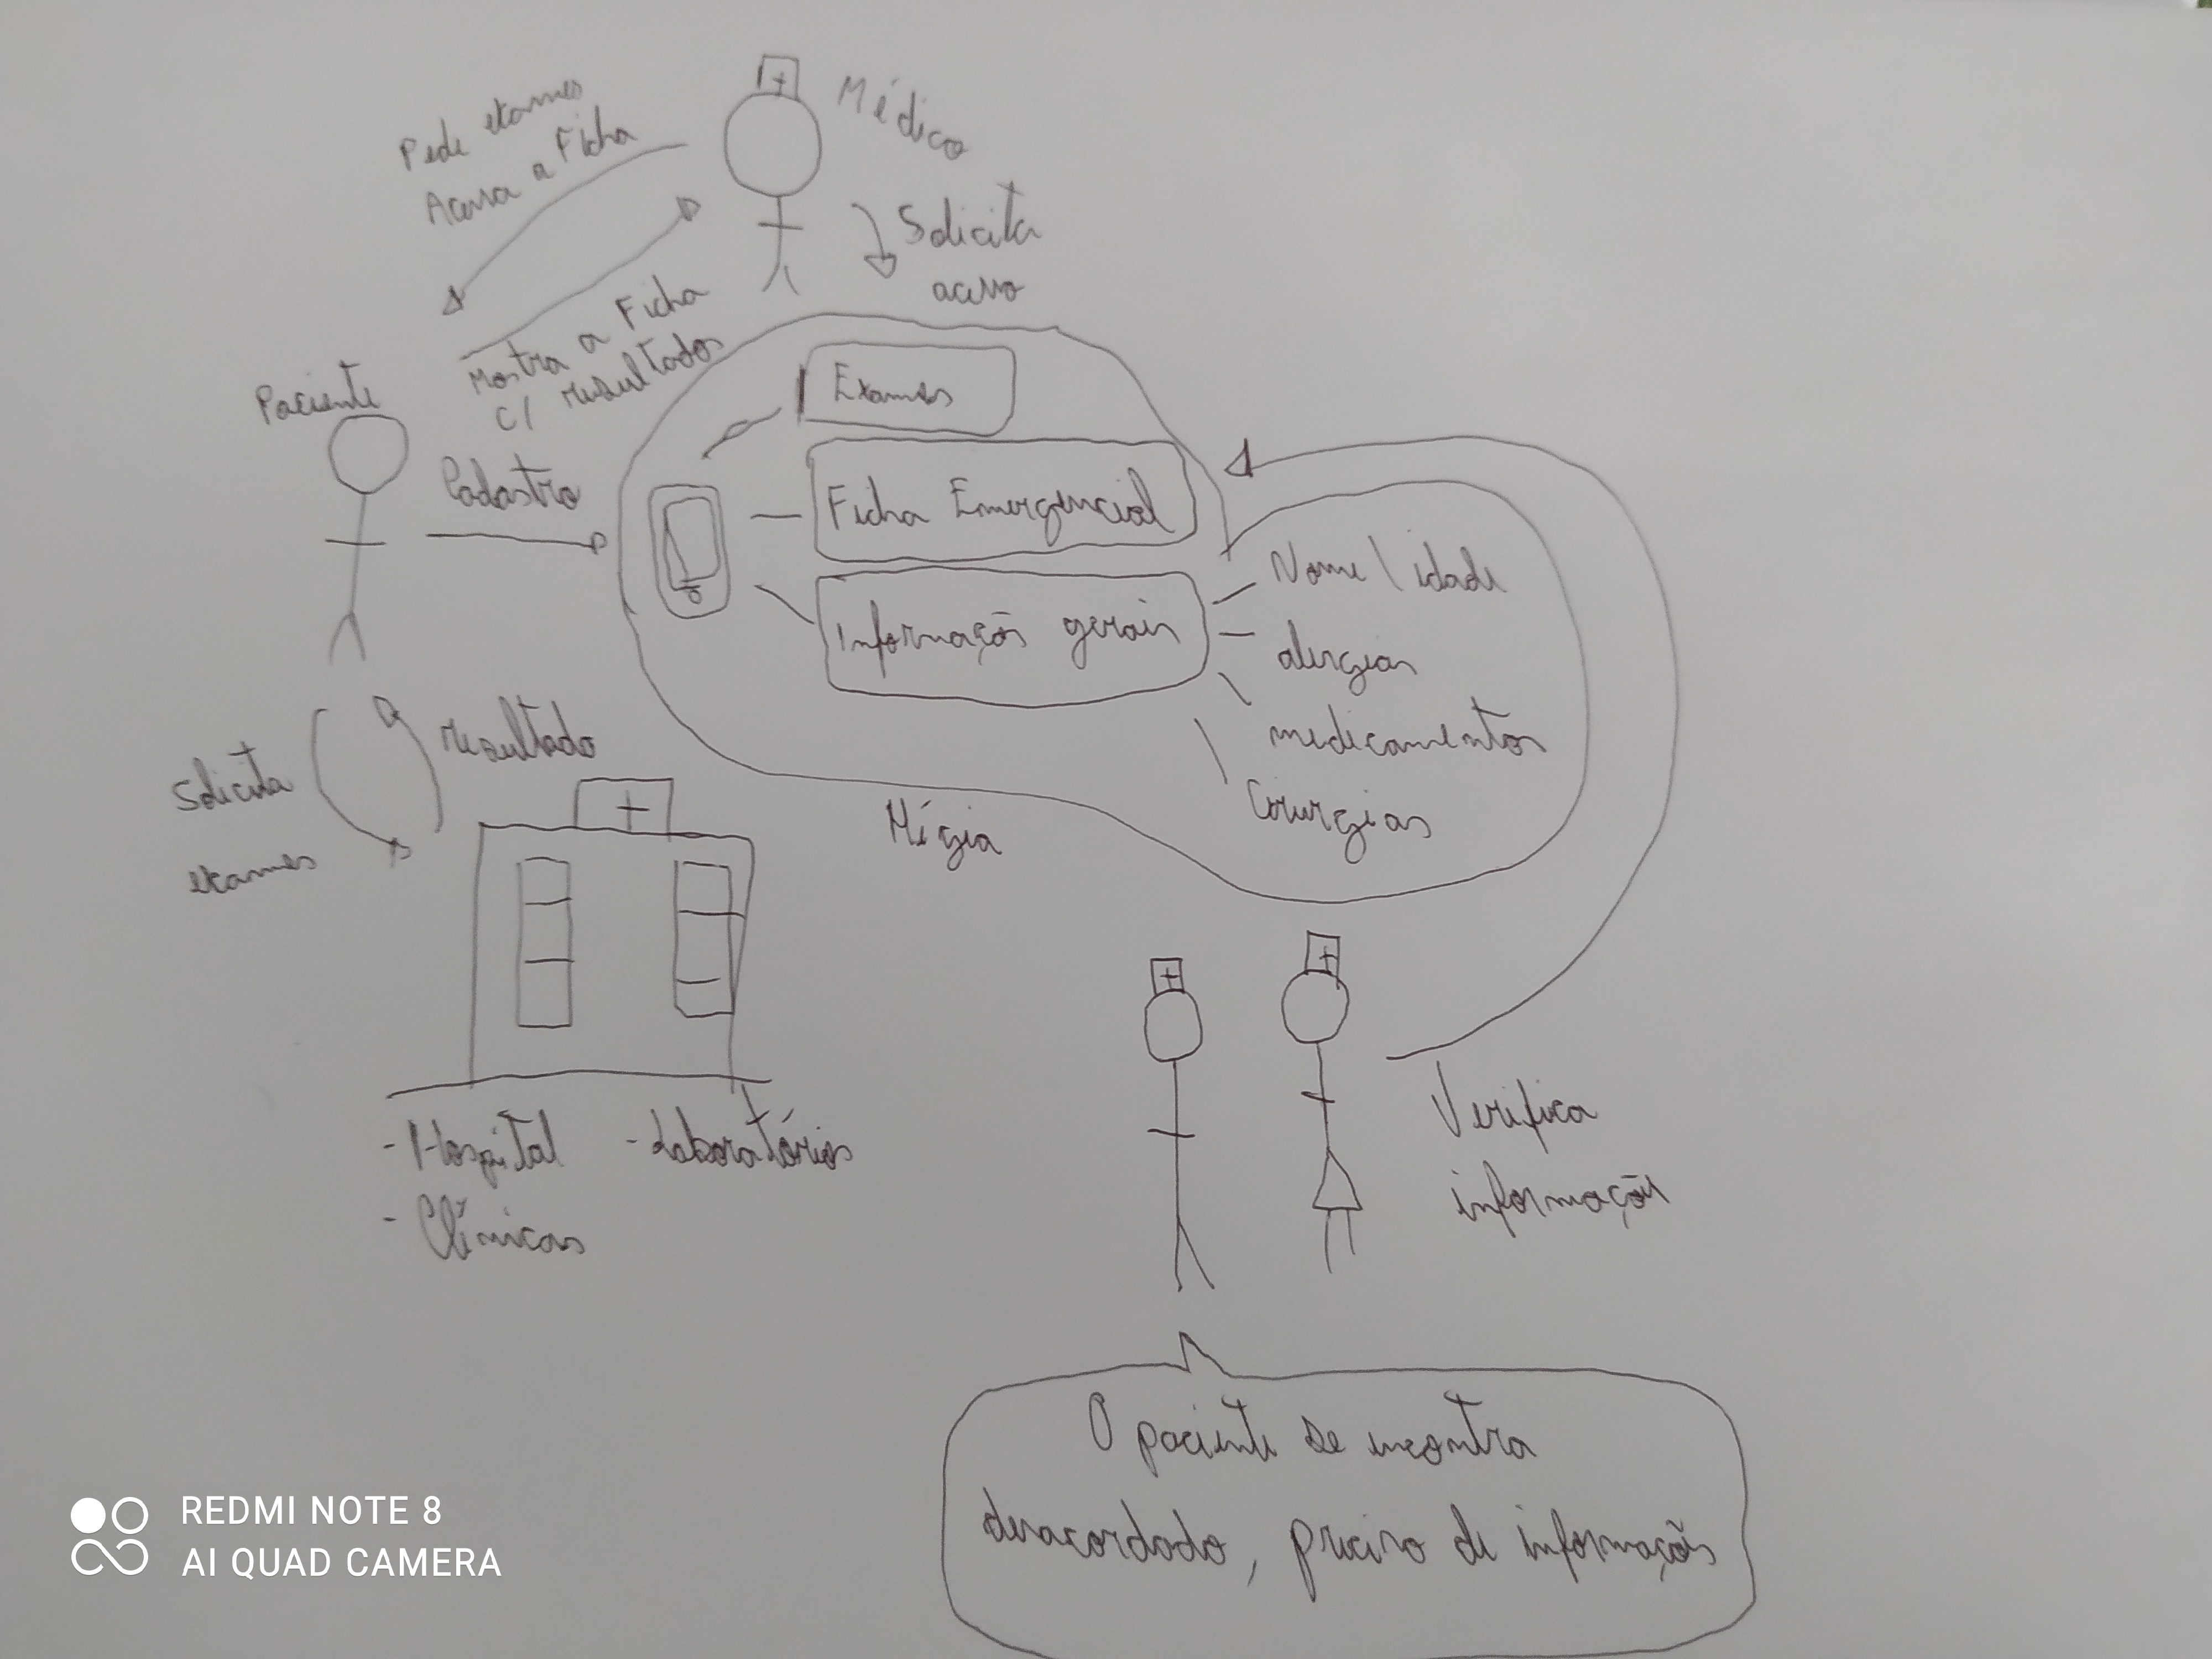 Pede exames
Acessa a Ficha
Médico
Solicita
acesso
Mostra a Ficha
c/ resultados
Paciente
Cadastro
Exames
Ficha Emergencial
Informações gerais
Nome / idade
alergias
medicamentos
Cirurgias
Hígia
Solicita
exames
resultado
- Hospital - Laboratórios
- Clínicas
Verifica
informações
O paciente se encontra
desacordado, preciso de informações
REDMI NOTE 8
AI QUAD CAMERA